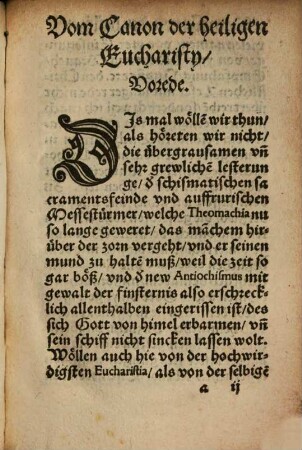 Vom Canon der heiligen
Eucharisty/
Vorede.
DIs mal wöllē wir thun/
als höreten wir nicht/
die übergrausamen vñ
sehr grewlichē lesterun
ge/ ď schismatischen sa
cramentsfeinde vnd auffrurischen
Messestürmer/ welche Theomachia nu
so lange geweret/ das māchem hir-
über der zorn vergeht/ vnd er seinen
mund zu halte muß/ weil die zeit so
gar böß/ vnd ď new Antiochismus mit
gewalt der finsternis also erschreck-
lich allenthalben eingerissen ist/ des
sich Gott von himel erbarmen/ vñ
sein schiff nicht sincken lassen wolt.
Wöllen auch hie von der hochwir-
digsten Eucharistia/ als von der selbigē
a ij